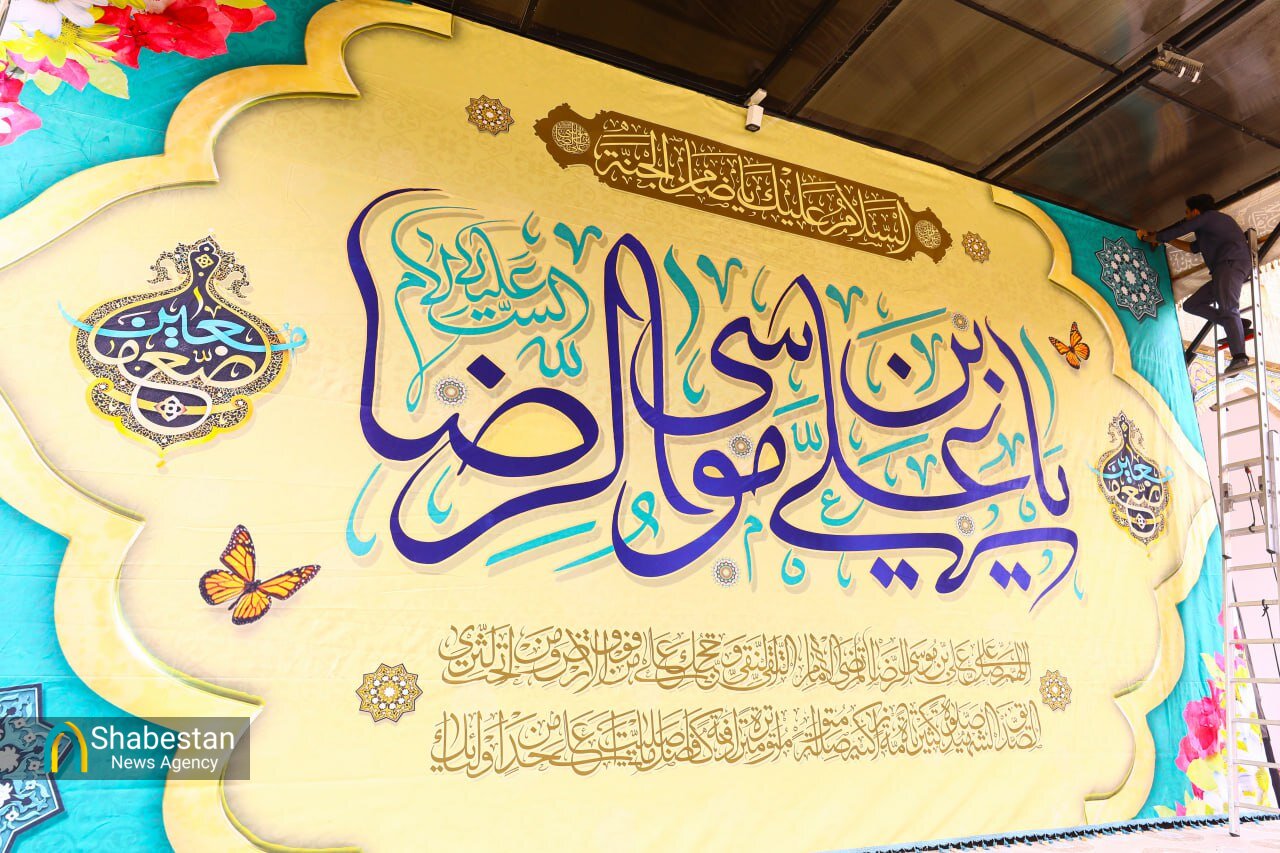 السلام علیک یا ضامن الجنة
یا علی بن موسی الرضا
علیه السلام
معین الضعفاء
معین الضعفاء
اللهم صل علی علی بن موسی الرضا المرتضی الامام التقی النقی و حجتک علی من فوق الارض و من تحت الثری
الصدیق الشهید صلاة کثیرة تامة زاکیة متواصلة متواترة مترادفة کافضل ما صلیت علی احد من اولیائک
Shabestan
News Agency